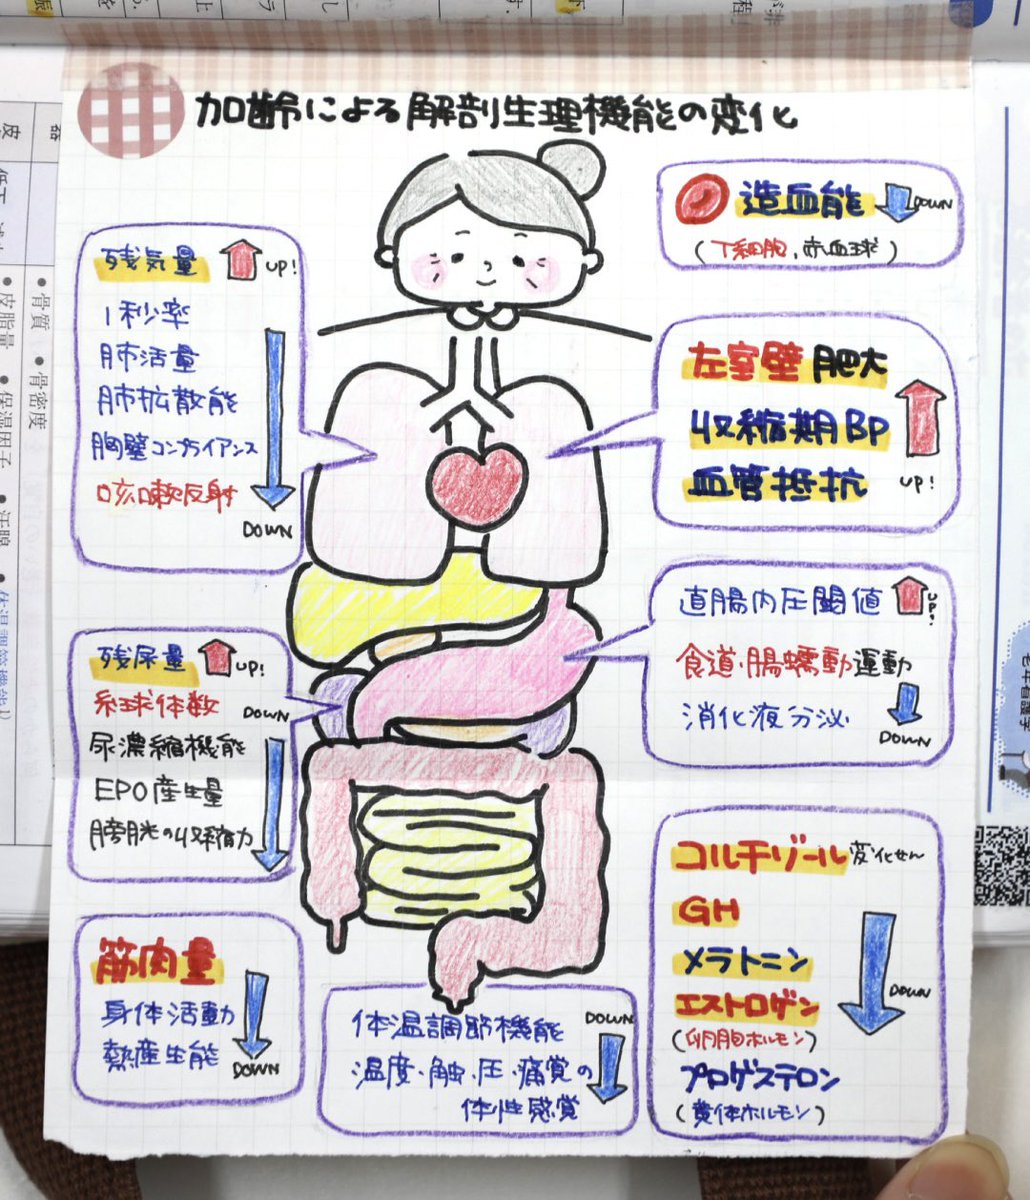 加齢による解剖生理機能の変化
残気量 UP!
1秒率
肺活量
肺拡散能
胸壁コンプライアンス
咳嗽反射
DOWN
造血能 DOWN
(T細胞、赤血球)
左室壁肥大
収縮期BP
血管抵抗
UP!
残尿量 UP!
糸球体数 DOWN
尿濃縮機能
EPO産生量
膀胱の収縮力
直腸内圧閾値 UP!
食道・腸蠕動運動
消化液分泌
DOWN
筋肉量
身体活動
熱産生能
DOWN
体温調節機能 DOWN
温度・触・圧・痛覚の
体性感覚
コルチゾール変化せん
GH
メラトニン
エストロゲン
(卵胞ホルモン)
プロゲステロン
(黄体ホルモン)
DOWN
●骨質 ●骨密度